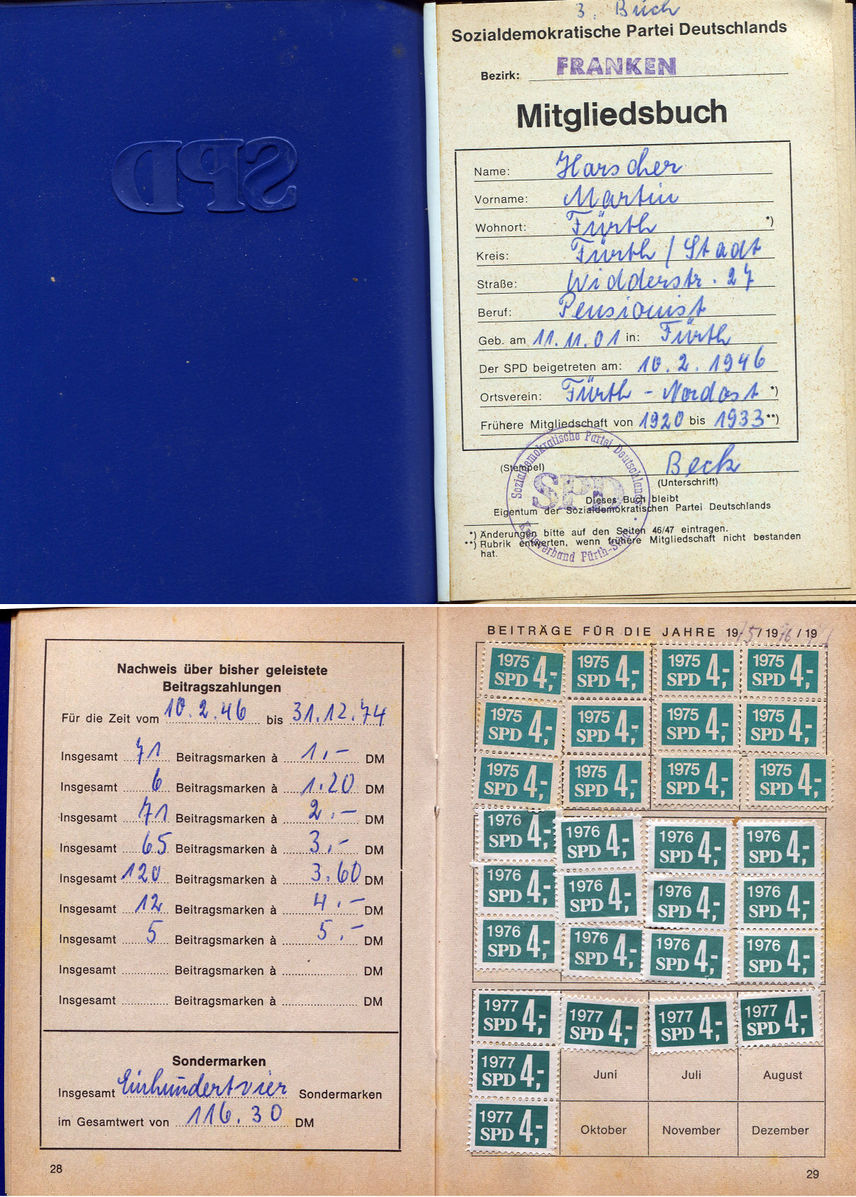 SPD
3. Buch
Sozialdemokratische Partei Deutschlands
Bezirk: FRANKEN
Mitgliedsbuch
Name: Harscher
Vorname: Martin
Wohnort: Fürth *)
Kreis: Fürth / Stadt
Straße: Widderstr. 27
Beruf: Pensionist
Geb. am 11.11.01 in: Fürth
Der SPD beigetreten am: 10.2.1946
Ortsverein: Fürth - Nordost *)
Frühere Mitgliedschaft von 1920 bis 1933 **)
Sozialdemokratische Partei Deutschlands
SPD
(Stempel) Beck
(Unterschrift)
Dieses Buch bleibt
Eigentum der Sozialdemokratischen Partei Deutschlands
*) Änderungen bitte auf den Seiten 46/47 eintragen.
**) Rubrik entwerten, wenn frühere Mitgliedschaft nicht bestanden
hat.
Nachweis über bisher geleistete
Beitragszahlungen
Für die Zeit vom 10.2.46 bis 31.12.74
Insgesamt 71 Beitragsmarken à 1.- DM
Insgesamt 6 Beitragsmarken à 1.20 DM
Insgesamt 71 Beitragsmarken à 2.- DM
Insgesamt 65 Beitragsmarken à 3.- DM
Insgesamt 120 Beitragsmarken à 3.60 DM
Insgesamt 12 Beitragsmarken à 4.- DM
Insgesamt 5 Beitragsmarken à 5.- DM
Insgesamt Beitragsmarken à DM
Insgesamt Beitragsmarken à DM
Sondermarken
Insgesamt Einhundertvier Sondermarken
im Gesamtwert von 116.30 DM
28
BEITRÄGE FÜR DIE JAHRE 1975/1976/19
1975 SPD 4,- 1975 SPD 4,- 1975 SPD 4,- 1975 SPD 4,-
1975 SPD 4,- 1975 SPD 4,- 1975 SPD 4,- 1975 SPD 4,-
1975 SPD 4,- 1975 SPD 4,- 1975 SPD 4,- 1975 SPD 4,-
1976 SPD 4,- 1976 SPD 4,- 1976 SPD 4,- 1976 SPD 4,-
1976 SPD 4,- 1976 SPD 4,- 1976 SPD 4,- 1976 SPD 4,-
1976 SPD 4,- 1976 SPD 4,- 1976 SPD 4,- 1976 SPD 4,-
1977 SPD 4,- 1977 SPD 4,- 1977 SPD 4,- 1977 SPD 4,-
1977 SPD 4,- Juni Juli August
1977 SPD 4,- Oktober November Dezember
29